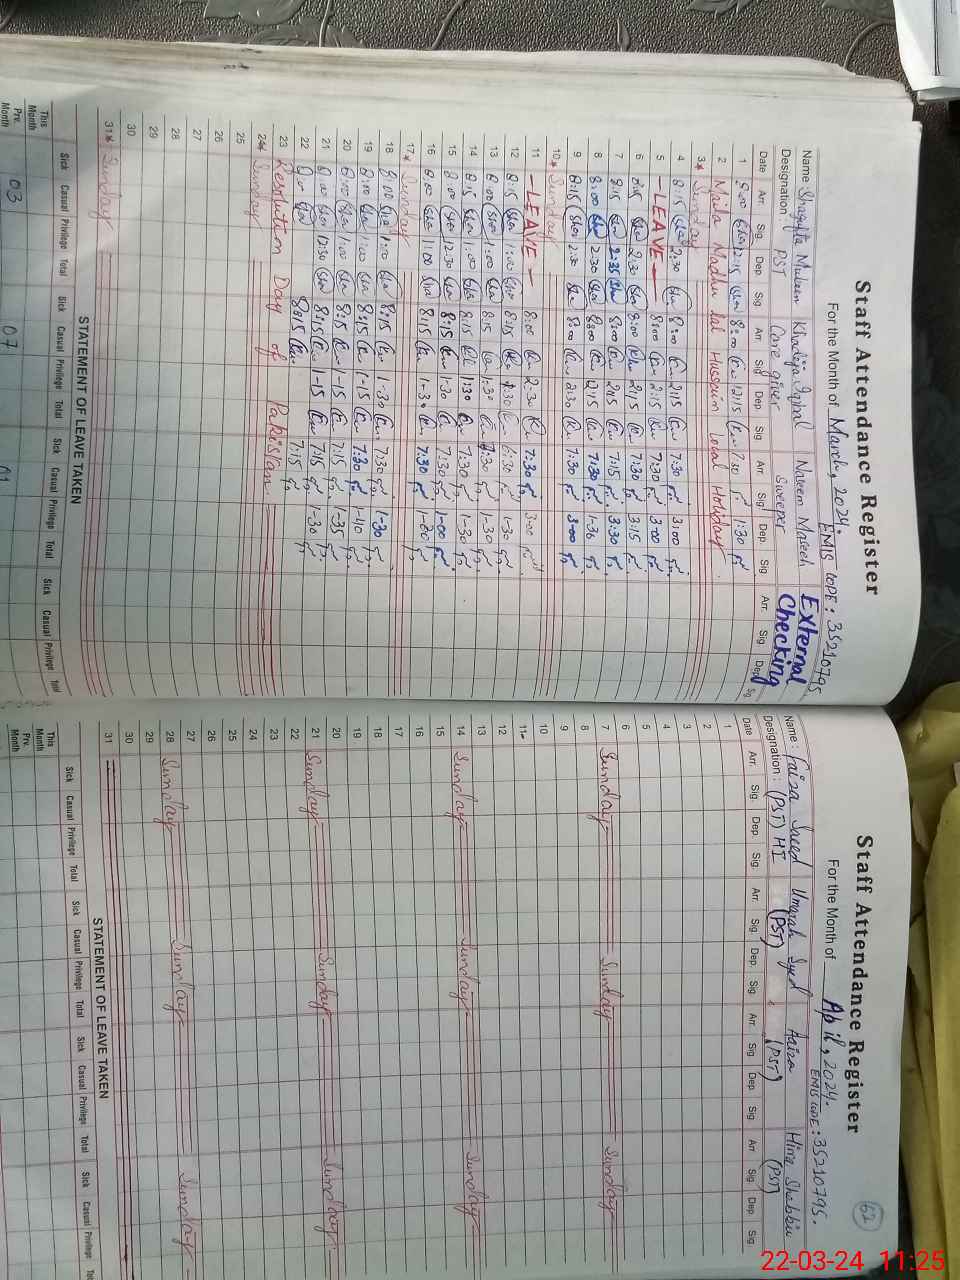 Staff Attendance Register
For the Month of March, 2024.
EMIS CODE: 35210795
Name Shagufta Mubeen Khadija Iqbal Naleem Maseeh External
Designation: PST Care giver Sweeper Checking
Date Arr. Sig. Dep. Sig. Arr. Sig. Dep. Sig. Arr. Sig. Dep. Sig. Arr. Sig. Dep. Sig.
1 8:00 12:15 8:00 12:15 7:30 1:30
2 Maila Madhu lal Hussain local Holiday
3* Sunday
4 8:15 2:30 8:00 2:15 7:30 3:00
5 -LEAVE- 8:00 2:15 7:30 3:00
6 8:15 2:30 8:00 2:15 7:30 3:15
7 8:15 2:35 8:00 2:15 7:15 3:30
8 8:00 2:30 8:00 2:15 7:30 1-30
9 8:15 2:30 8:00 2:30 7:30 3:00
10* Sunday
11 -LEAVE- 8:00 2:30 7:30 3:00
12 8:15 1:00 8:15 1:30 6:30 1-30
13 8:00 1:00 8:15 1:30 7:30 1-30
14 8:15 1:00 8:15 1:30 7:30 1-30
15 8:00 12:30 8:15 1:30 7:30 1-00
16 8:00 1:00 8:15 1-30 7:30 1-00
17* Sunday
18 8:00 1:00 8:15 1-30 7:30 1-30
19 8:00 1:00 8:15 1-15 7:30 1-40
20 8:00 1:00 8:15 1-15 7:15 1-35
21 8:00 12:30 8:15 1-15 7:15 1-30
22 8:15 7:15
23 Resolution Day of Pakistan
24 Sunday
25
26
27
28
29
30
31* Sunday
STATEMENT OF LEAVE TAKEN
Sick Casual Privilege Total Sick Casual Privilege Total Sick Casual Privilege Total Sick Casual Privilege Total
This Month
Prv. Month 03 07
Staff Attendance Register
62
For the Month of April, 2024.
EMIS CODE: 35210795.
Name: Faiza Saeed Umarah Syed Aaiza Hina Shabbir
Designation: (PST) HI (PST) (PST) (PST)
Date Arr. Sig. Dep. Sig. Arr. Sig. Dep. Sig. Arr. Sig. Dep. Sig. Arr. Sig. Dep. Sig.
1
2
3
4
5
6
7 Sunday Sunday Sunday
8
9
10
11
12
13
14 Sunday Sunday Sunday
15
16
17
18
19
20
21 Sunday Sunday Sunday
22
23
24
25
26
27
28 Sunday Sunday Sunday
29
30
31
STATEMENT OF LEAVE TAKEN
Sick Casual Privilege Total Sick Casual Privilege Total Sick Casual Privilege Total Sick Casual Privilege
This Month
Prv. Month
22-03-24 11:25